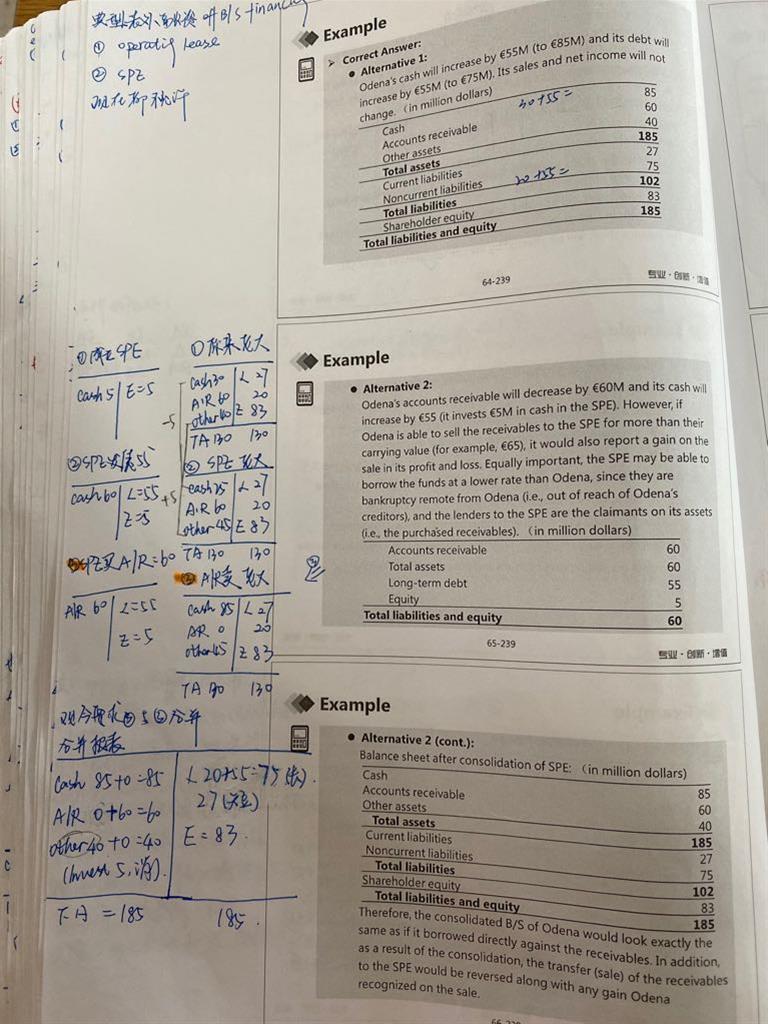 off B/S financing
① operating lease
② SPE
Example
➢ Correct Answer:
● Alternative 1:
Odena's cash will increase by €55M (to €85M) and its debt will
increase by €55M (to €75M). Its sales and net income will not
change. (in million dollars)
Cash 30+55= 85
Accounts receivable 60
Other assets 40
Total assets 185
Current liabilities 27
Noncurrent liabilities 20+55= 75
Total liabilities 102
Shareholder equity 83
Total liabilities and equity 185
64-239
专业·创新·增值
① SPE
cash 5 E=5
② SPE发债55
cash 60 L=55
E=5
③ SPE买A/R=60
A/R 60 L=55
E=5
① 原来老大
cash 30 L 27
A/R 60 20
other 40 E 83
TA 130 130
-5
+5
② SPE 老大
cash 25 L 27
A/R 60 20
other 45 E 83
TA 130 130
③ A/R卖 老大
cash 85 L 27
AR 0 20
other 45 E 83
TA 130 130
Example
● Alternative 2:
Odena's accounts receivable will decrease by €60M and its cash will
increase by €55 (it invests €5M in cash in the SPE). However, if
Odena is able to sell the receivables to the SPE for more than their
carrying value (for example, €65), it would also report a gain on the
sale in its profit and loss. Equally important, the SPE may be able to
borrow the funds at a lower rate than Odena, since they are
bankruptcy remote from Odena (i.e., out of reach of Odena's
creditors), and the lenders to the SPE are the claimants on its assets
(i.e., the purchased receivables). (in million dollars)
Accounts receivable 60
Total assets 60
Long-term debt 55
Equity 5
Total liabilities and equity 60
65-239
专业·创新·增值
合并报表
cash 85+0=85
A/R 0+60=60
other 40+0=40
(Invest 5, 消).
TA =185
L 20+55=75(长).
27(短)
E=83.
185.
Example
● Alternative 2 (cont.):
Balance sheet after consolidation of SPE: (in million dollars)
Cash 85
Accounts receivable 60
Other assets 40
Total assets 185
Current liabilities 27
Noncurrent liabilities 75
Total liabilities 102
Shareholder equity 83
Total liabilities and equity 185
Therefore, the consolidated B/S of Odena would look exactly the
same as if it borrowed directly against the receivables. In addition,
as a result of the consolidation, the transfer (sale) of the receivables
to the SPE would be reversed along with any gain Odena
recognized on the sale.
66-239